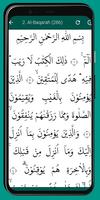 2. Al-Baqarah (286)
بِسْمِ ٱللَّهِ ٱلرَّحْمَٰنِ ٱلرَّحِيمِ
الٓمٓ ۝ ذَٰلِكَ ٱلْكِتَٰبُ لَا رَيْبَ
فِيهِ هُدًى لِّلْمُتَّقِينَ ۝ ٱلَّذِينَ
يُؤْمِنُونَ بِٱلْغَيْبِ وَيُقِيمُونَ
ٱلصَّلَوٰةَ وَمِمَّا رَزَقْنَٰهُمْ يُنفِقُونَ
۝ وَٱلَّذِينَ يُؤْمِنُونَ بِمَآ أُنزِلَ
إِلَيْكَ وَمَآ أُنزِلَ مِن قَبْلِكَ
وَبِٱلْءَاخِرَةِ هُمْ يُوقِنُونَ ۝ أُو۟لَٰٓئِكَ
عَلَىٰ هُدًى مِّن رَّبِّهِمْ وَأُو۟لَٰٓئِكَ